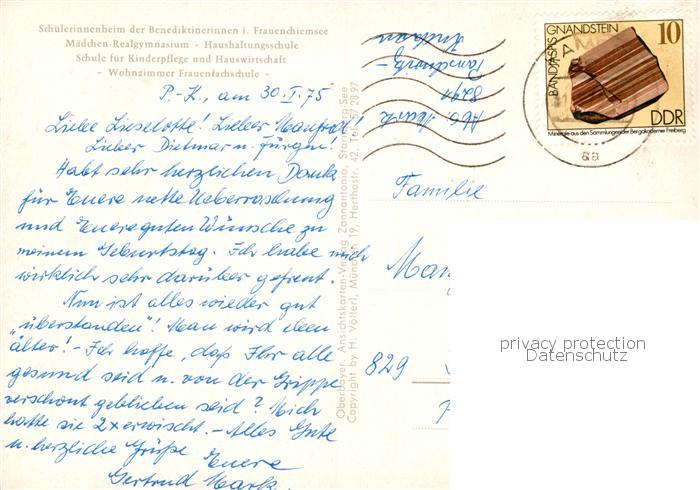 Schülerinnenheim der Benediktinerinnen i. Frauenchiemsee
Mädchen-Realgymnasium - Haushaltungsschule
Schule für Kinderpflege und Hauswirtschaft
- Wohnzimmer Frauenfachschule -
P.-K., am 30.I.75
Liebe Lieselotte! Lieber Manfred!
Lieber Dietmar u. Jürgen!
Habt sehr herzlichen Dank
für Euere nette Ueberraschung
und Euere guten Wünsche zu
meinem Geburtstag. Ich habe mich
wirklich sehr darüber gefreut.
Nun ist alles wieder gut
„überstanden"! Man wird eben
älter! - Ich hoffe, daß Ihr alle
gesund seid u. von der Grippe
verschont geblieben seid? Mich
hatte sie 2x erwischt. - Alles Gute
u. herzliche Grüße
Euere
Gertrud Mark.
Oberbayer. Ansichtskarten-Verlag Zannantonio, Starnberg/See
Copyright by H. Völterl, München 19, Herthastr. 42, Tel. 57 28 97
Abs. Mark
8291
Panschwitz-
Kuckau
BANDJASPIS GNANDSTEIN
10
DDR
Minerale aus den Sammlungen der Bergakademie Freiberg
aa
Familie
Man
829
privacy protection
Datenschutz